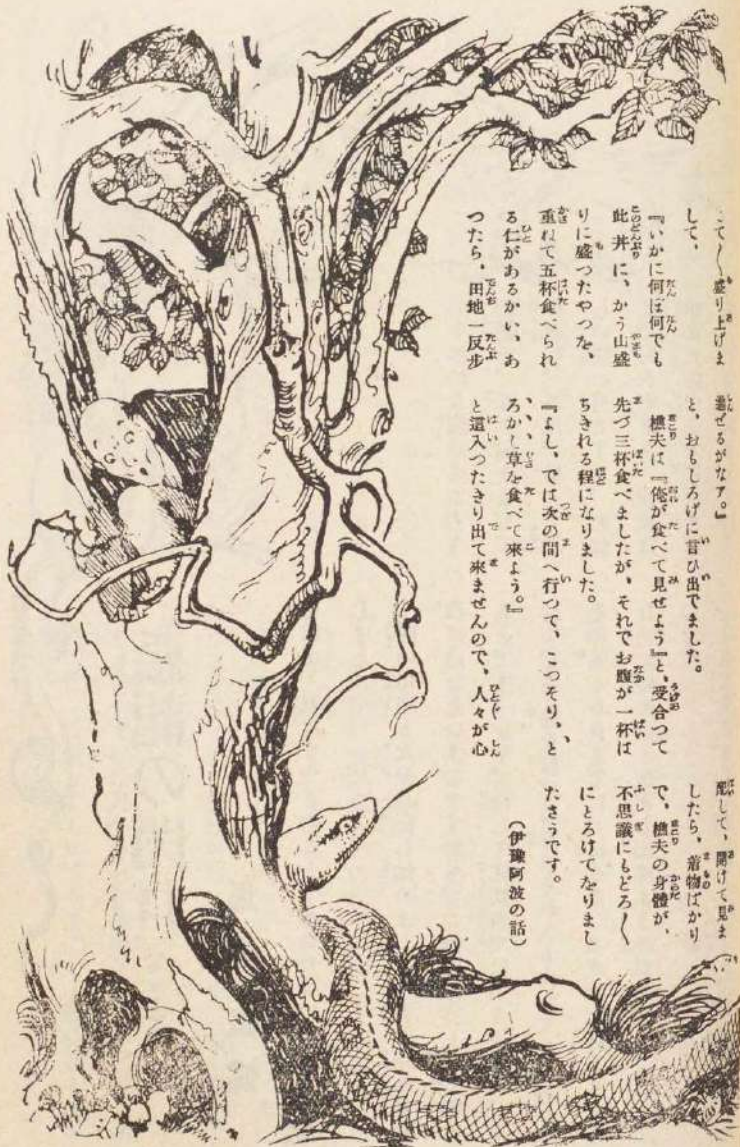 こて〱盛り上げま
して、
『いかに何ぼ何でも
此丼に、かう山盛
りに盛つたやつを、
重ねて五杯食べられ
る仁があるかい、あ
つたら、田地一反歩
進ぜるがなア。』
と、おもしろげに言ひ出でました。
樵夫は『俺が食べて見せよう』と、受合つて
先づ三杯食べましたが、それでお腹が一杯は
ちきれる程になりました。
『よし、では次の間へ行つて、こつそり、と
ろかし草を食べて來よう。』
と這入つたきり出て來ませんので、人々が心
配して、開けて見ま
したら、着物ばかり
で、樵夫の身體が、
不思議にもどろ〱
にとろけてをりまし
たさうです。
（伊豫阿波の話）